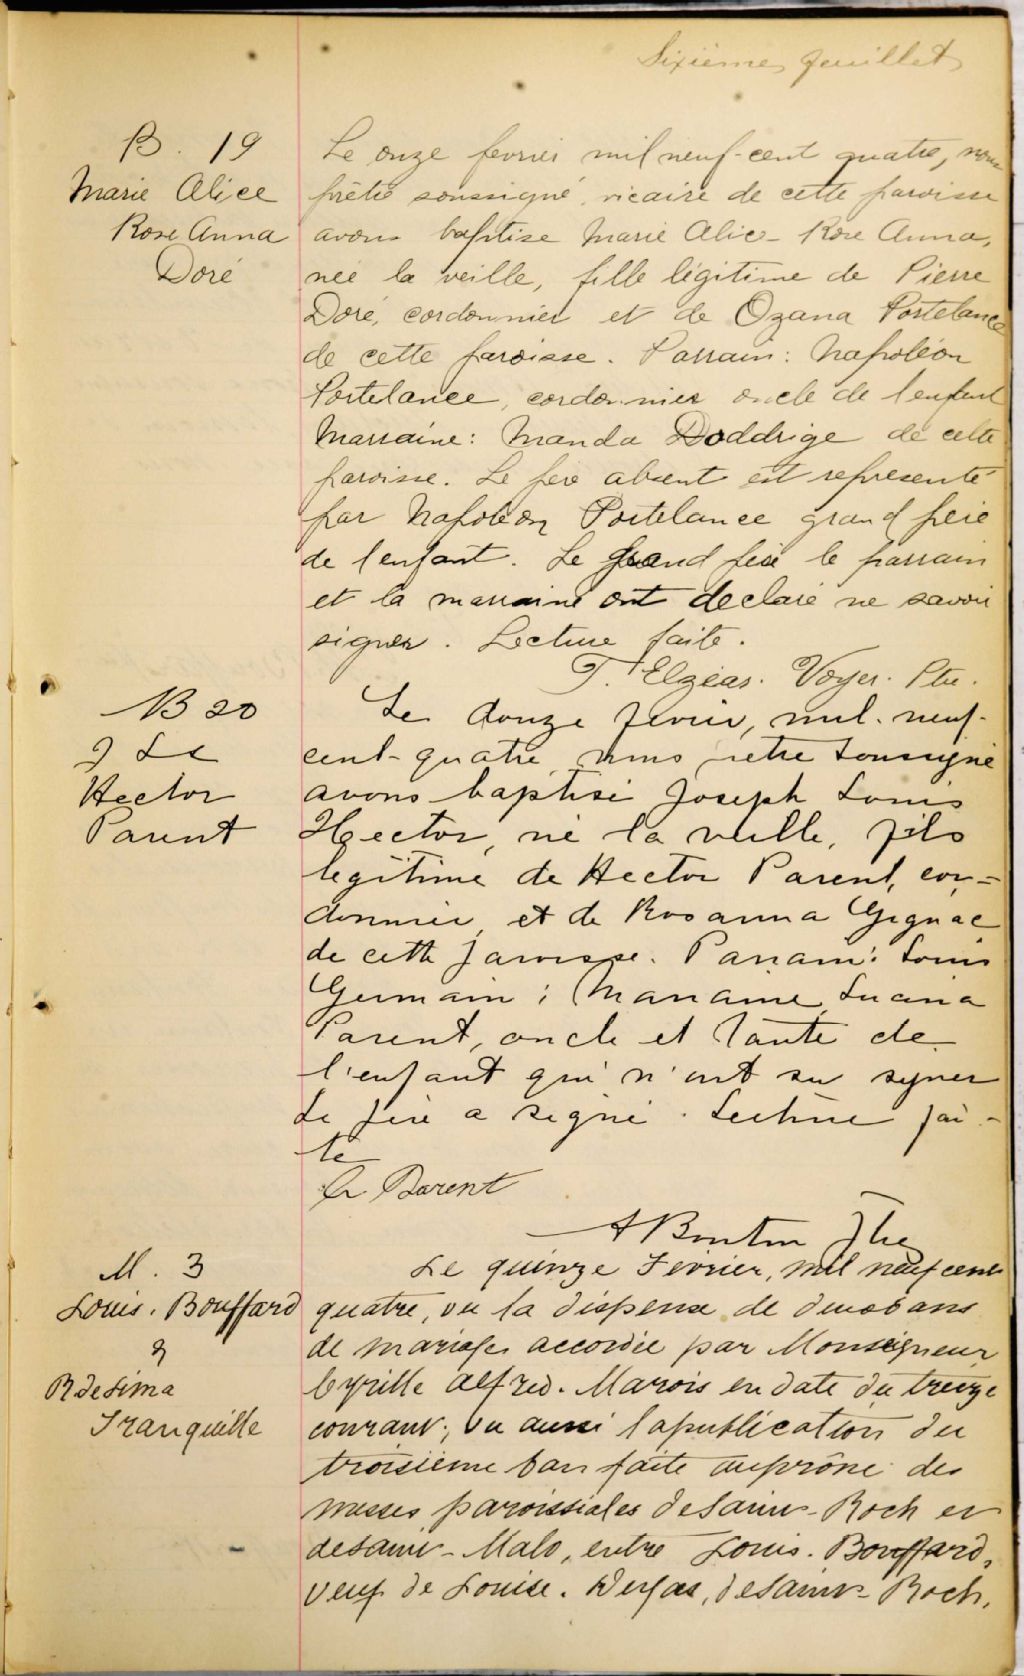 Sixième feuillet
B. 19
Marie Alice
Rose Anna
Doré
Le onze fevrier mil neuf-cent quatre, nous
prêtre soussigné, vicaire de cette paroisse
avons baptise Marie Alice-Rose Anna,
née la veille, fille légitime de Pierre
Doré, cordonnier et de Ozana Portelance
de cette paroisse. Parrain: Napoléon
Portelance, cordonnier oncle de l'enfant
Marraine: Manda Doddrige de cette
paroisse. Le père absent est représenté
par Napoléon Portelance grand père
de l'enfant. Le grand père le parrain
et la marraine ont declaré ne savoir
signer. Lecture faite.
T. Elzéar. Voyer. Ptre.
B 20
J Ls
Hector
Parent
Le douze fevrier, mil-neuf-
cent-quatre nous prêtre soussigné
avons baptisé Joseph Louis
Hector, né la veille, fils
légitime de Hector Parent, cor-
donnier, et de Rosanna Gignac
de cette paroisse. Parrain: Louis
Germain; Marraine, Lucina
Parent, oncle et tante de
l'enfant qui n'ont su signer
Le père a signé. Lecture fai-
te
Parent
A Boutin Ptre
M. 3
Louis. Bouffard
&
Rdesima
Tranquille
Le quinze Février, mil neuf cent
quatre, vu la dispense de deux bans
de mariage accordée par Monseigneur
Cyrille Alfred. Marois en date du treize
courant; vu aussi la publication du
troisième ban faite au prône des
messes paroissiales de Saint-Roch et
de Saint-Malo, entre Louis. Bouffard,
veuf de Louise. de Saint-Roch,